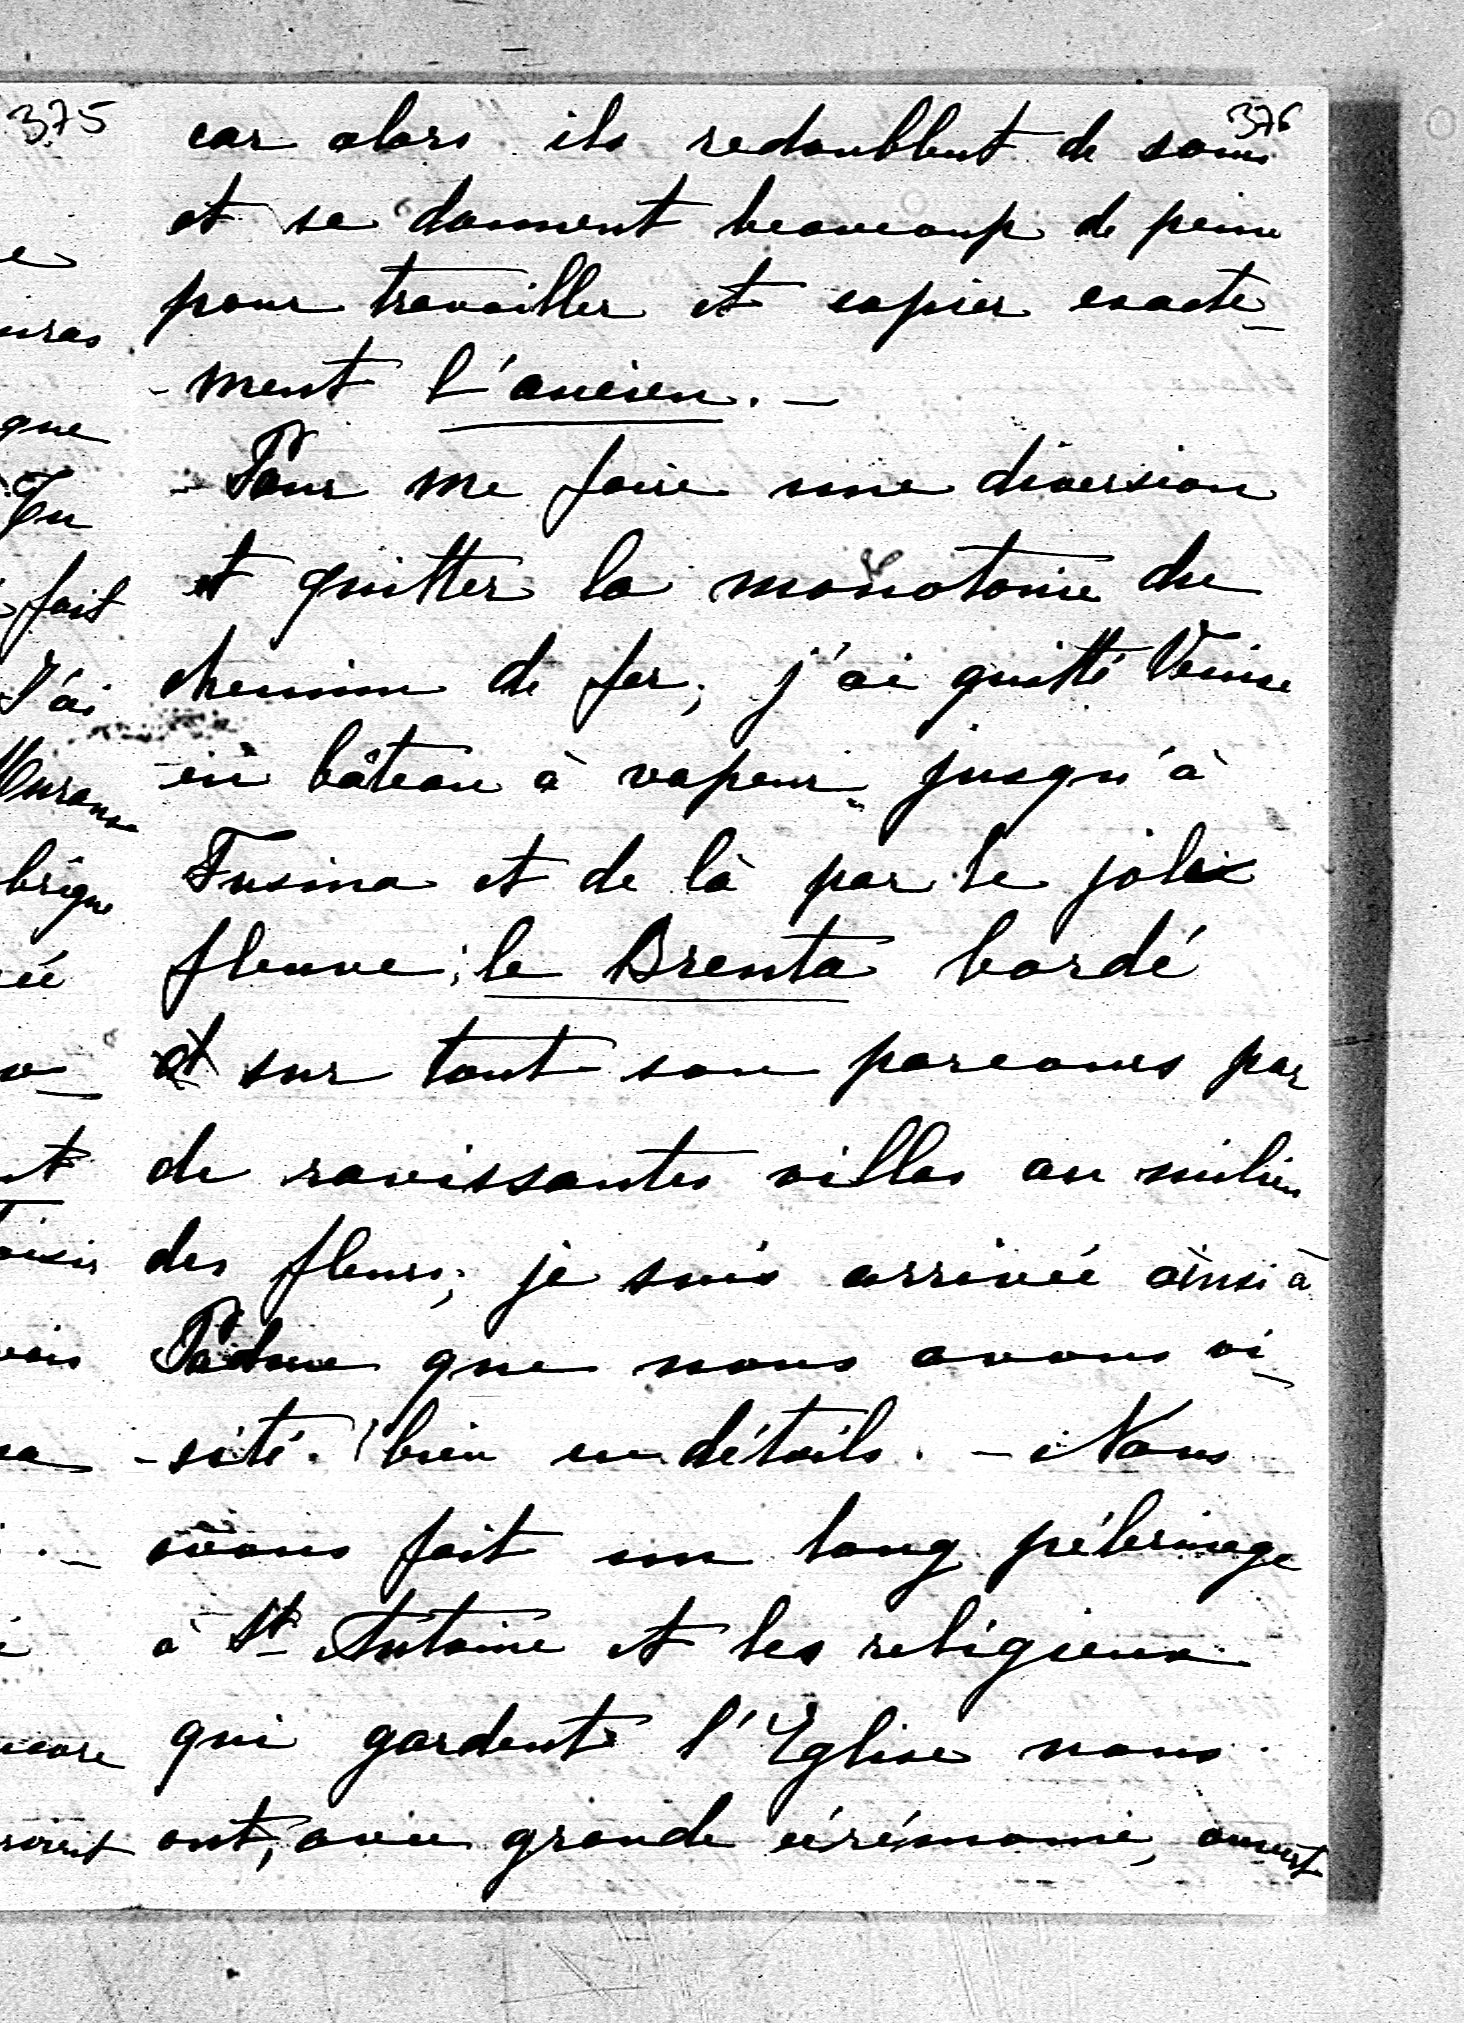 375
376
car alors ils redoublent de soins
et se donnent beaucoup de peine
pour travailler et copier exacte-
-ment l'ancien. -
- Pour me faire une diversion
et quitter la monotonie du
chemin de fer, j'ai quitté Venise
en bâteau à vapeur jusqu'à
Fusina et de là par le joli
fleuve, le Brenta bordé
et sur tout son parcours par
de ravissantes villas au milieu
des fleurs; je suis arrivée ainsi à
Padoue que nous avons vi-
-sité bien en détails. - Nous
avons fait un long pélerinage
à St Antoine et les religieux
qui gardent l'Eglise nous
ont, avec grande cérémonie, ouvert
que
Tu
fait
J'ai